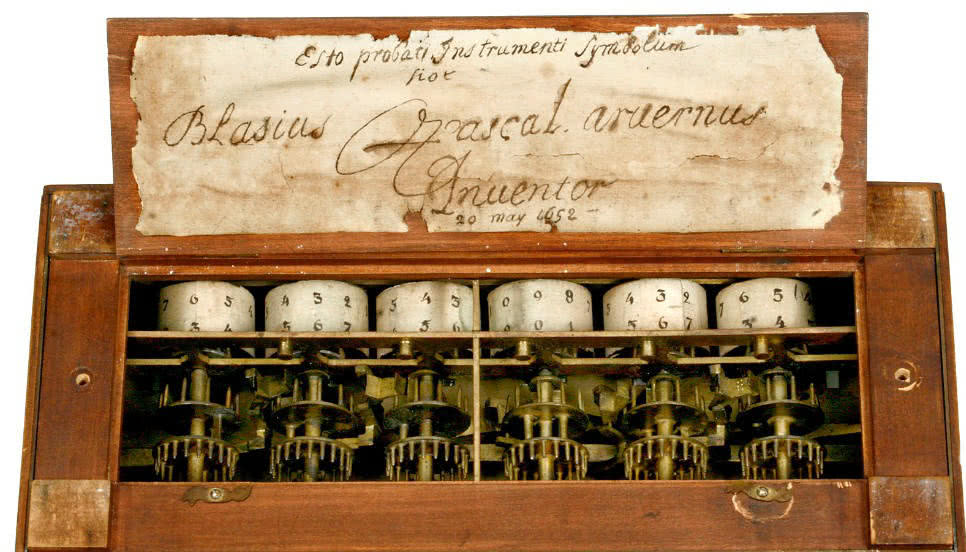 Esto probati Instrumenti Symbolum
hoc
Blasius Pascal. aruernus
Inuentor
20 may 1652
7 6 5
4 3 2
5 4 3
0 9 8
4 3 2
7 6 5 4
3 4
5 6 7
5 6
9 0 1
5 6 7
3 4